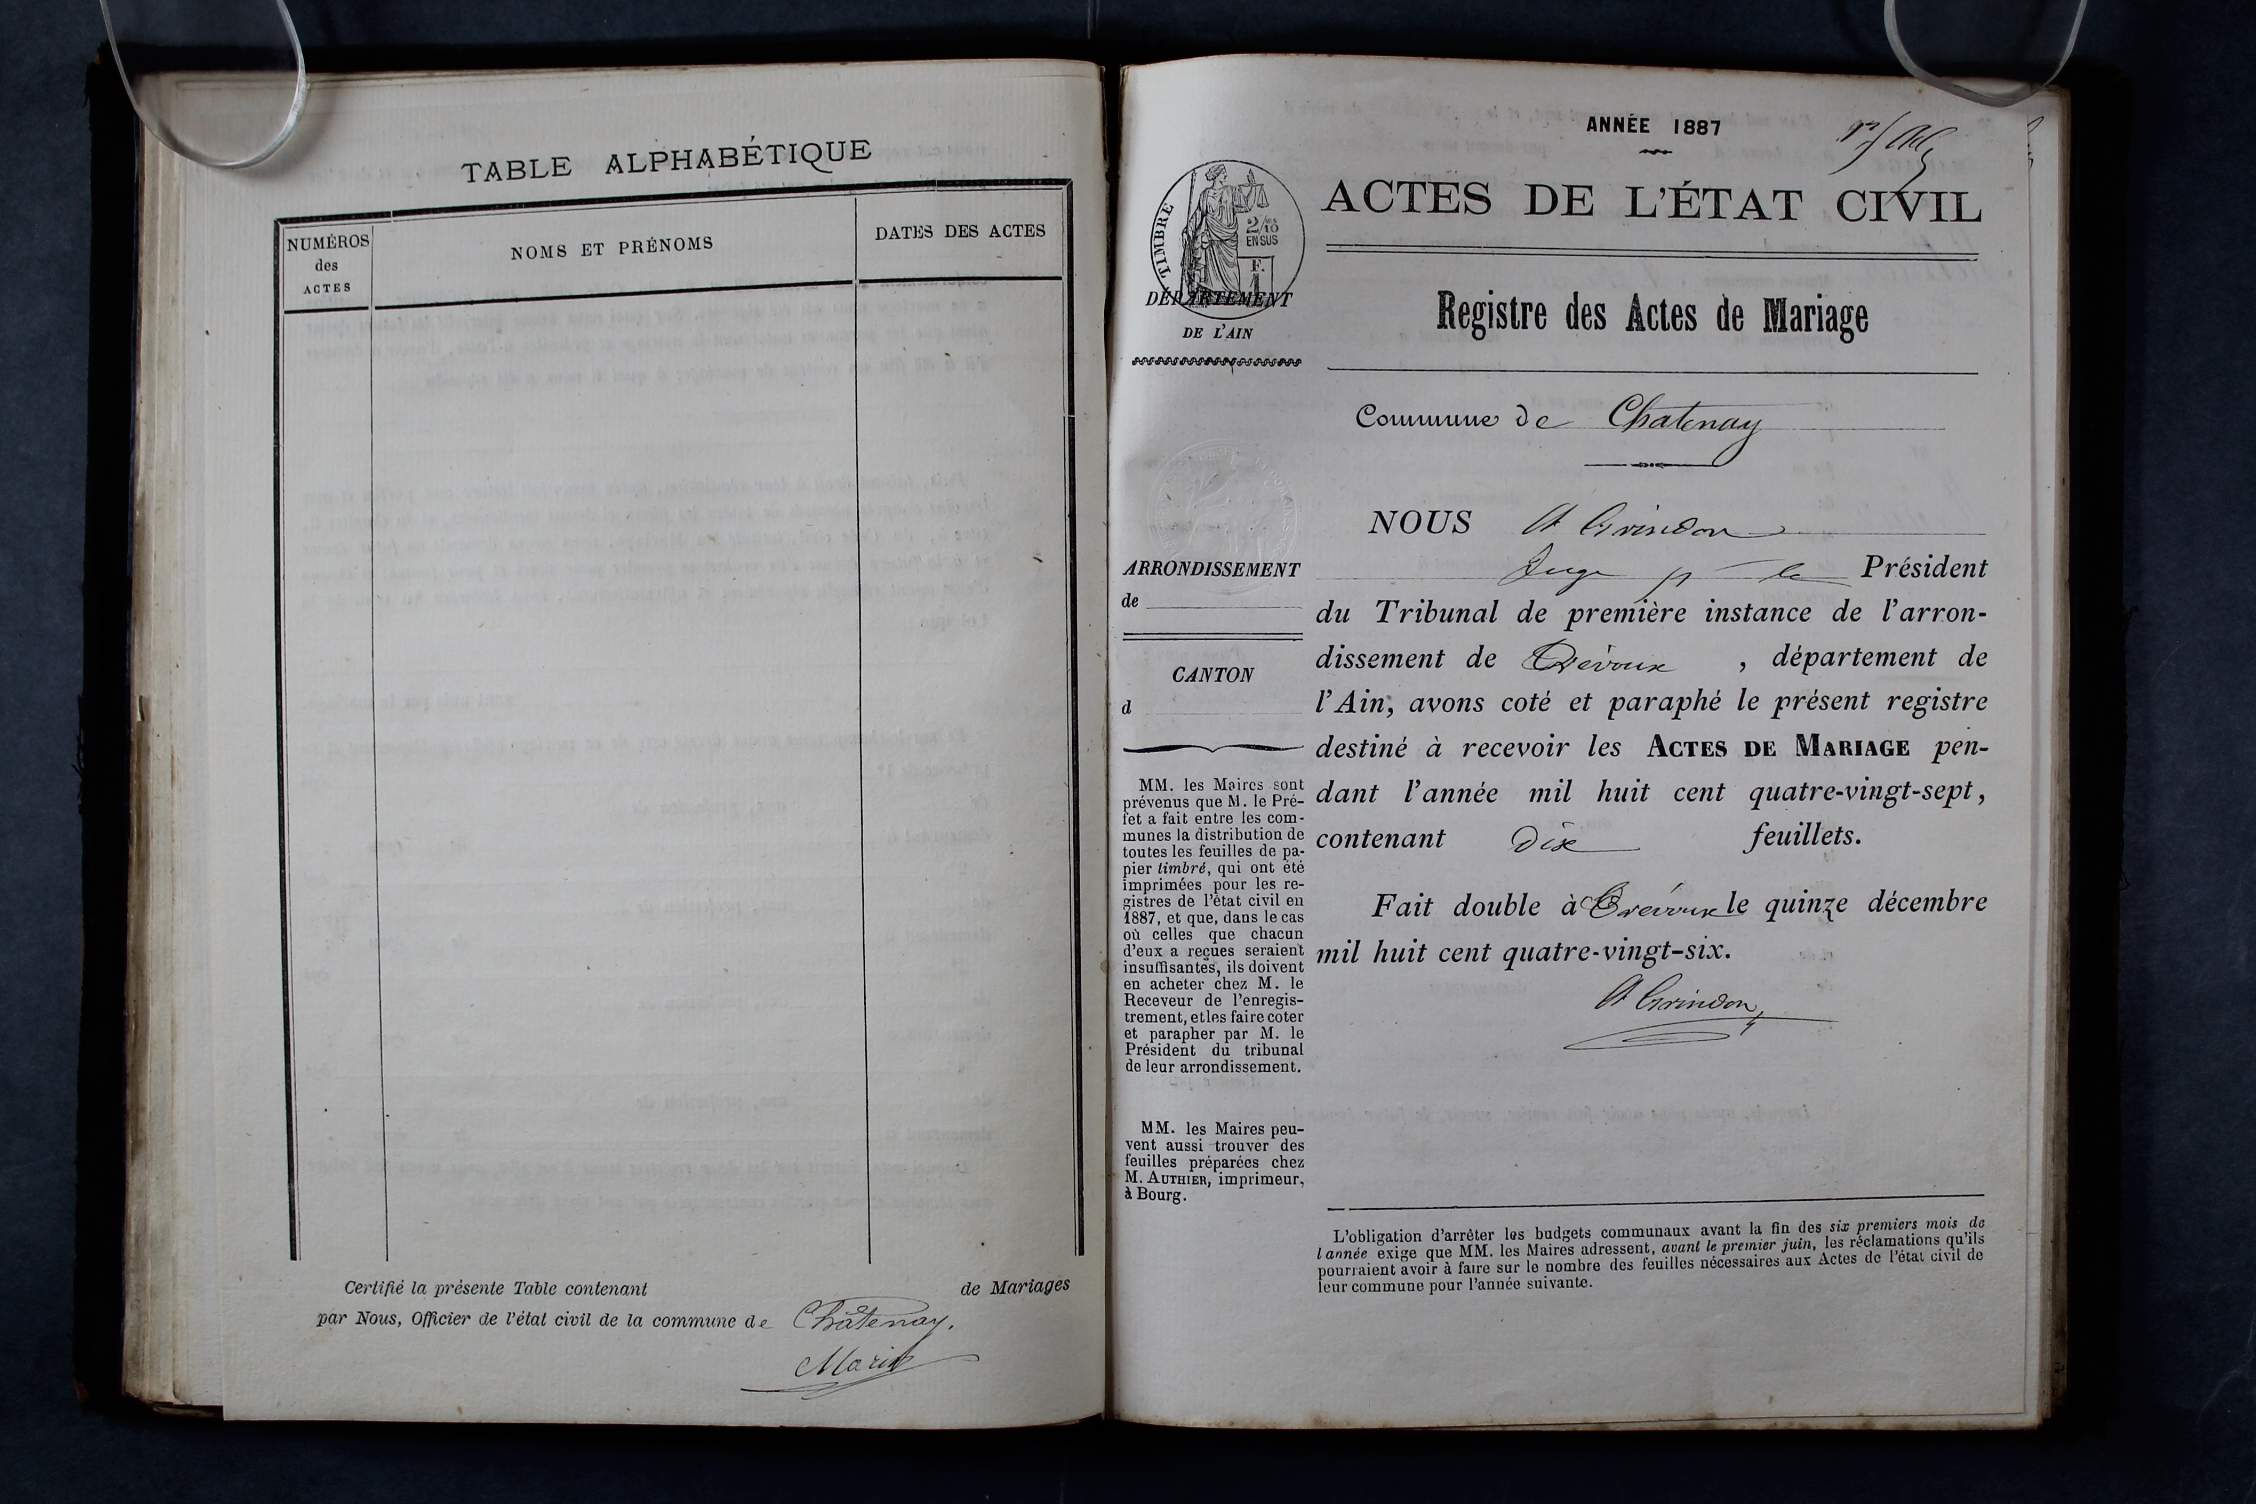 TABLE ALPHABÉTIQUE
NUMÉROS
des
ACTES
NOMS ET PRÉNOMS
DATES DES ACTES
Certifié la présente Table contenant de Mariages
par Nous, Officier de l'état civil de la commune de Châtenay.
Marin
ANNÉE 1887
ACTES DE L'ÉTAT CIVIL
TIMBRE
2/10
EN SUS
F.
1
DÉPARTEMENT
DE L'AIN
Registre des Actes de Mariage
Commune de Chatenay
ARRONDISSEMENT
de
CANTON
d
MM. les Maires sont
prévenus que M. le Pré-
fet a fait entre les com-
munes la distribution de
toutes les feuilles de pa-
pier timbré, qui ont été
imprimées pour les re-
gistres de l'état civil en
1887, et que, dans le cas
où celles que chacun
d'eux a reçues seraient
insuffisantes, ils doivent
en acheter chez M. le
Receveur de l'enregis-
trement, et les faire coter
et parapher par M. le
Président du tribunal
de leur arrondissement.
MM. les Maires peu-
vent aussi trouver des
feuilles préparées chez
M. AUTHIER, imprimeur,
à Bourg.
NOUS A Grindon
Juge p le Président
du Tribunal de première instance de l'arron-
dissement de Trévoux , département de
l'Ain, avons coté et paraphé le présent registre
destiné à recevoir les ACTES DE MARIAGE pen-
dant l'année mil huit cent quatre-vingt-sept,
contenant Dix feuillets.
Fait double à Trévoux le quinze décembre
mil huit cent quatre-vingt-six.
A Grindon
L'obligation d'arrêter les budgets communaux avant la fin des six premiers mois de
l'année exige que MM. les Maires adressent, avant le premier juin, les réclamations qu'ils
pourraient avoir à faire sur le nombre des feuilles nécessaires aux Actes de l'état civil de
leur commune pour l'année suivante.